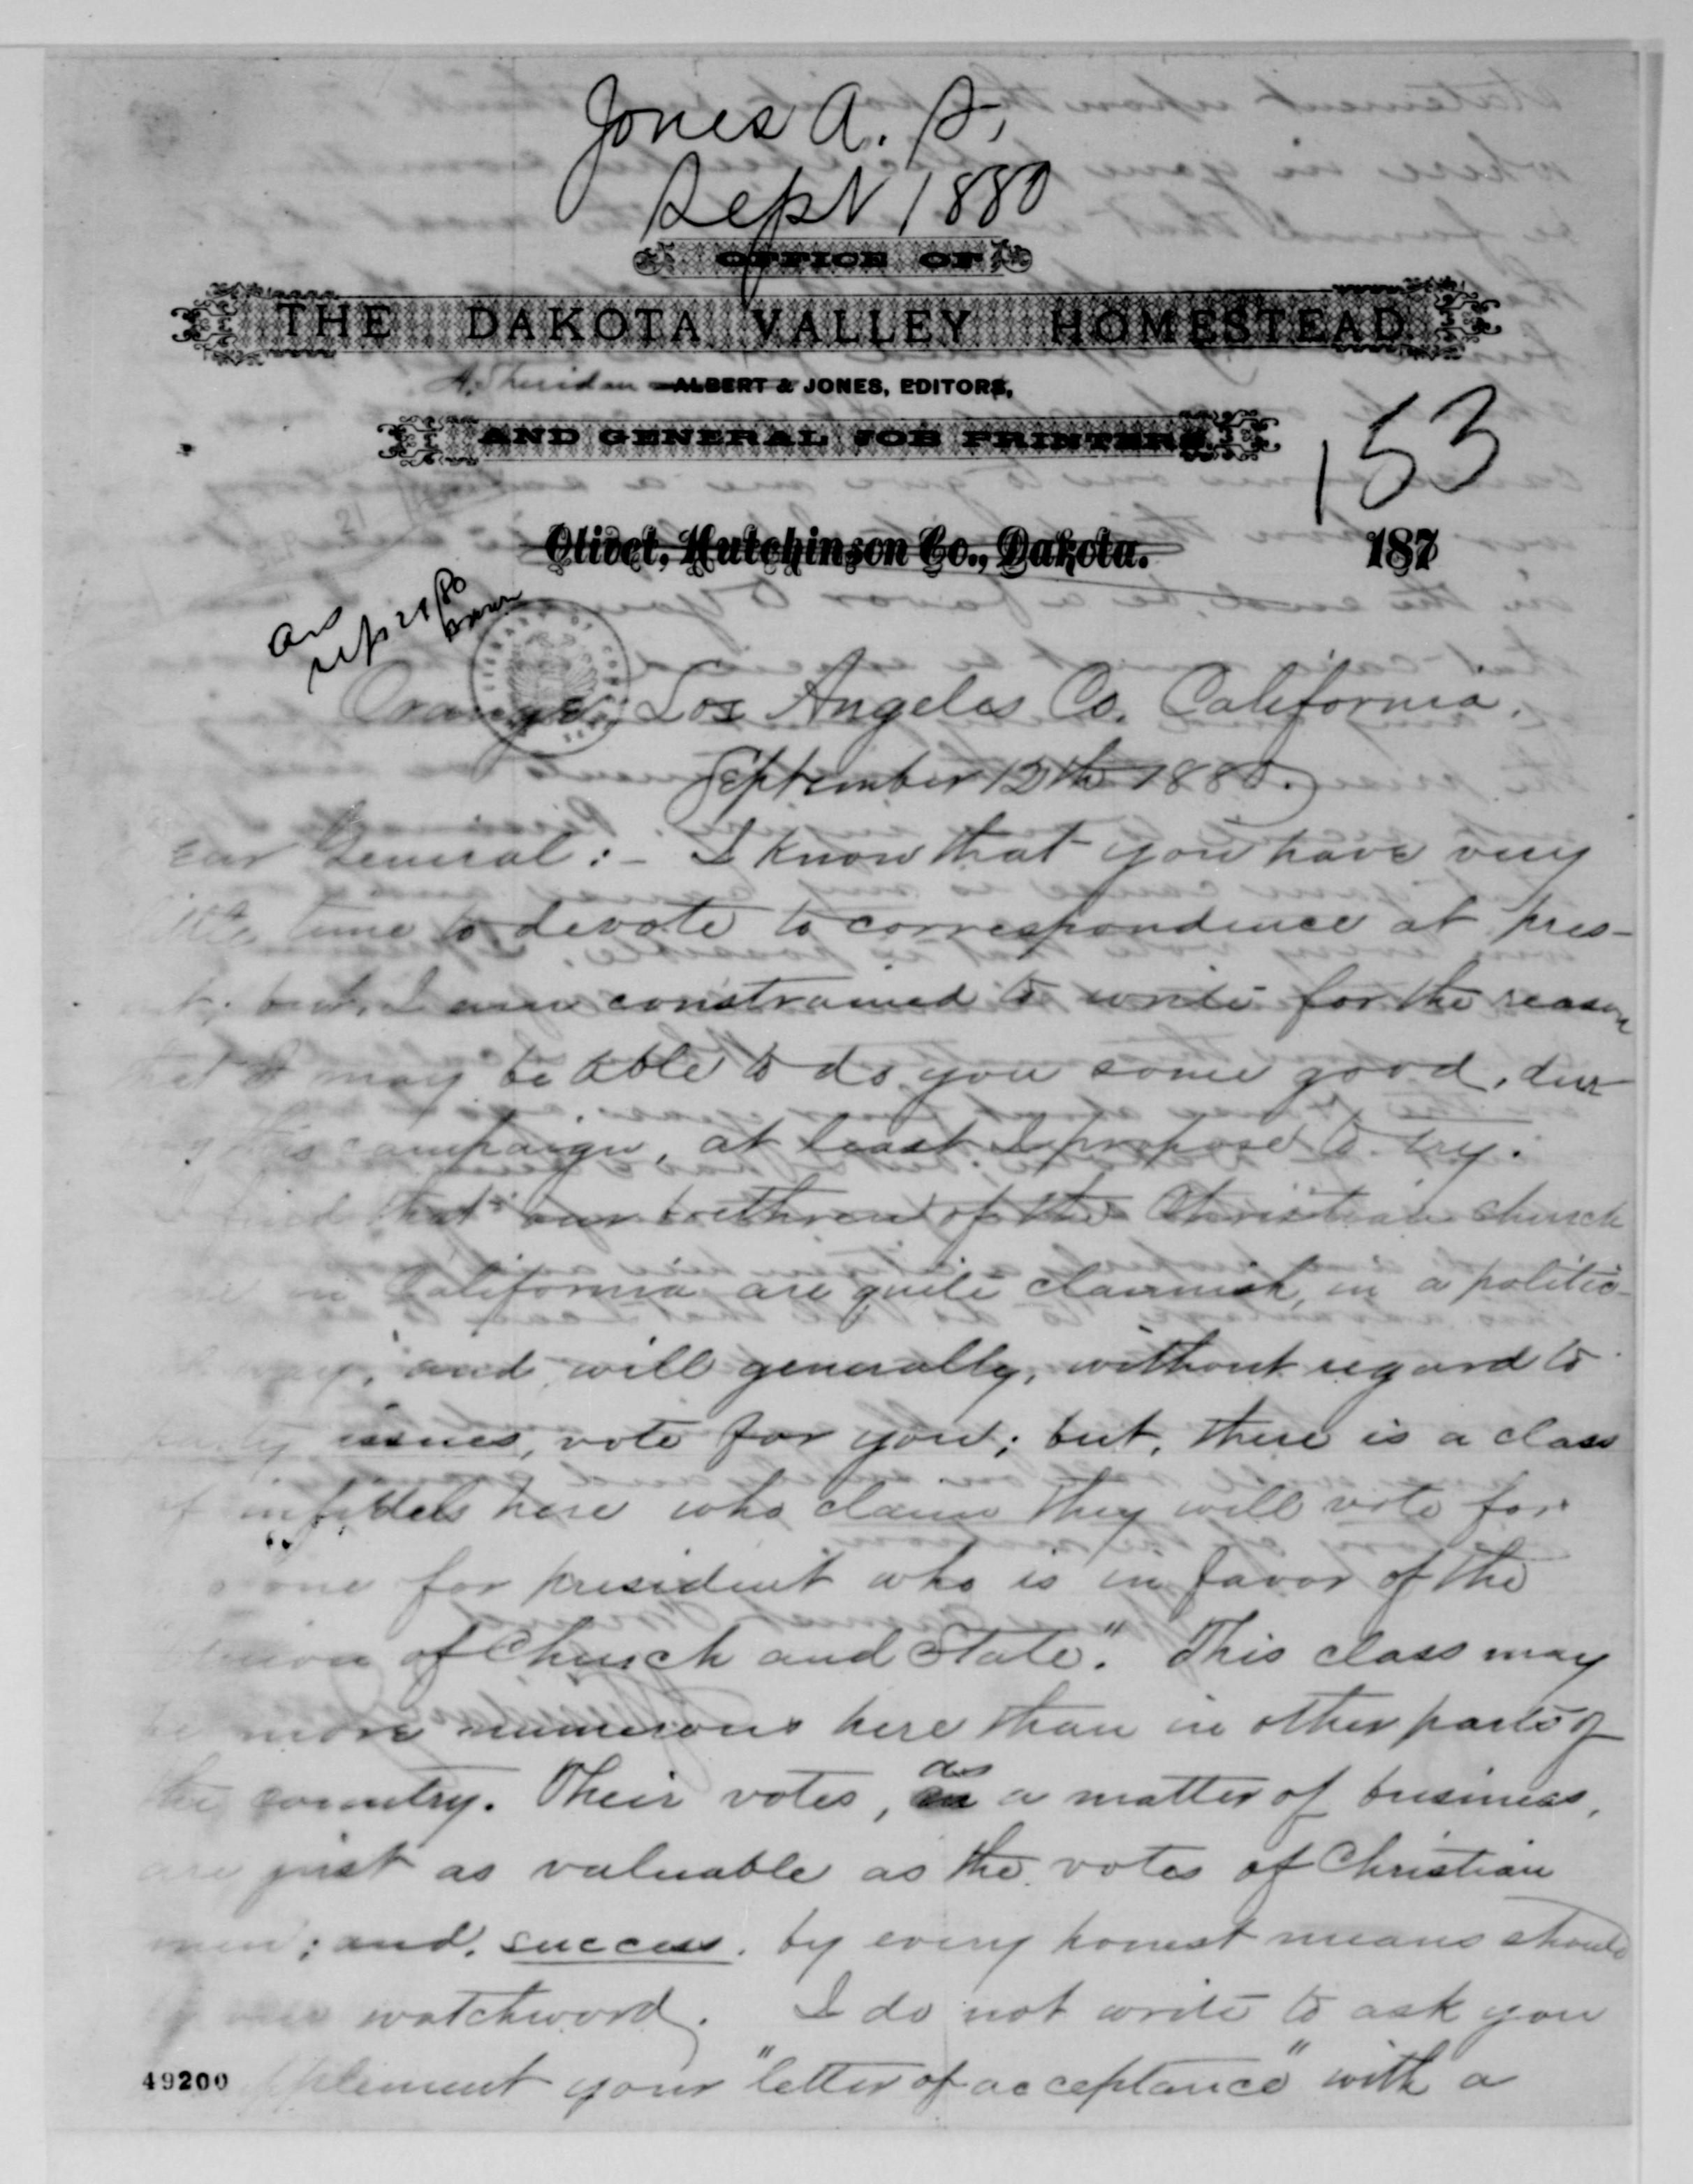 Jones A. S.
Sept 1880
OFFICE OF
THE DAKOTA VALLEY HOMESTEAD
A. Sheridan ALBERT & JONES, EDITORS,
AND GENERAL JOB PRINTERS
153
Olivet, Hutchinson Co., Dakota. 187
Ans
Sep 21/80
Orange, Los Angeles Co. California.
September 12th 1880.
ear General :- I know that you have very
little time to devote to correspondence at pres-
but, I am constrained to write for the reason
that I may be able to do you some good, dur
ing this campaign, at least I propose to try.
I find that our brethren of the Christian church
in California are quite clannish, in a politic-
way, and will generally, without regard to
party issues, vote for you; but, there is a class
of infidels here who claim they will vote for
one for president who is in favor of the
of Church and State". This class may
be more numerous here than in other parts of
the country. Their votes, as a matter of business,
are just as valuable as the votes of Christian
men; and, success, by every honest means should
watchword. I do not write to ask you
pplement your "letter of acceptance" with a
49200